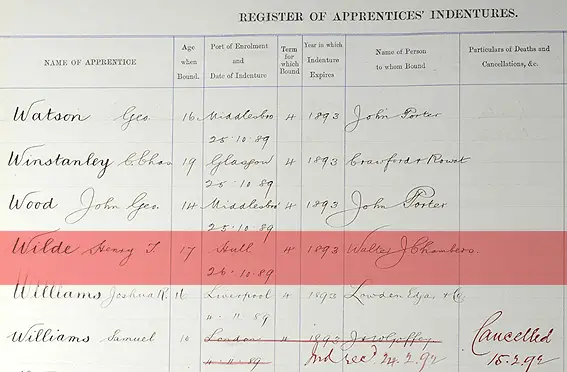 REGISTER OF APPRENTICES' INDENTURES.
NAME OF APPRENTICE Age when Bound. Port of Enrolment and Date of Indenture Term for which Bound Year in which Indenture Expires Name of Person to whom Bound Particulars of Deaths and Cancellations, &c.
Watson Geo. 16 Middlesbro 4 1893 John Porter
25.10.89
Winstanley C. Chas 19 Glasgow 4 1893 Crawford & Rowat
25.10.89
Wood John Geo. 14 Middlesbro 4 1893 John Porter
25.10.89
Wilde Henry T. 17 Hull 4 1893 Walter J Chambers
26.10.89
Williams Joshua R. 16 Liverpool 4 1893 Lowden & Co
4.11.89
Williams Samuel London 1893 Cancelled
4.11.89 Ind recd 24.2.92 15.2.92